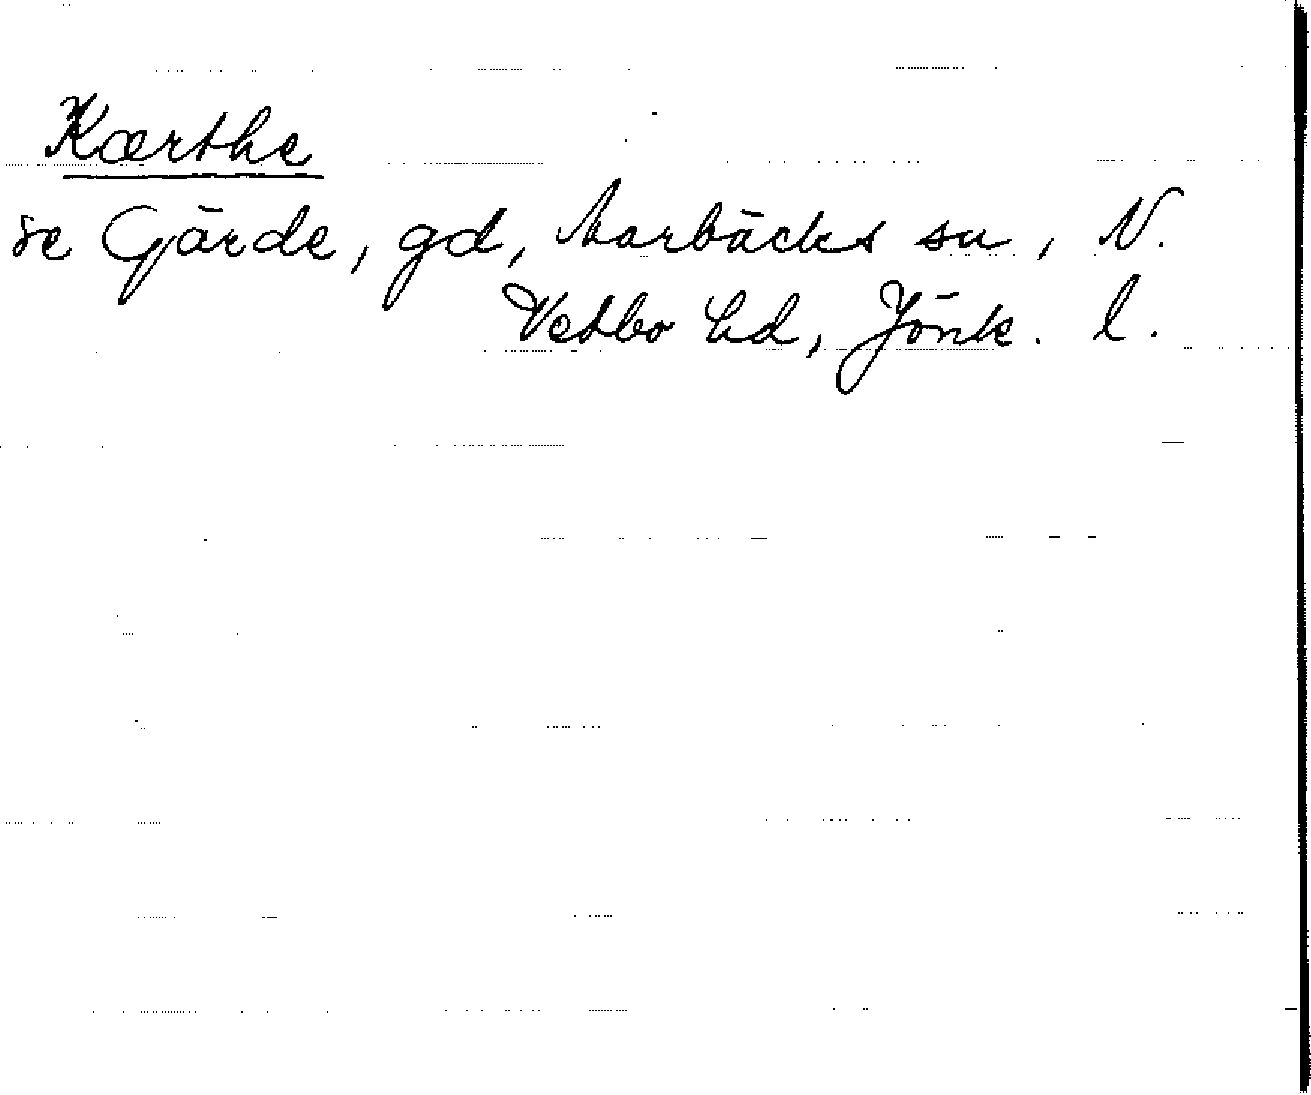 Kærthe
se Gärde, gd, Marbäcks sn, N.
Vetbo hd, Jönk. l.